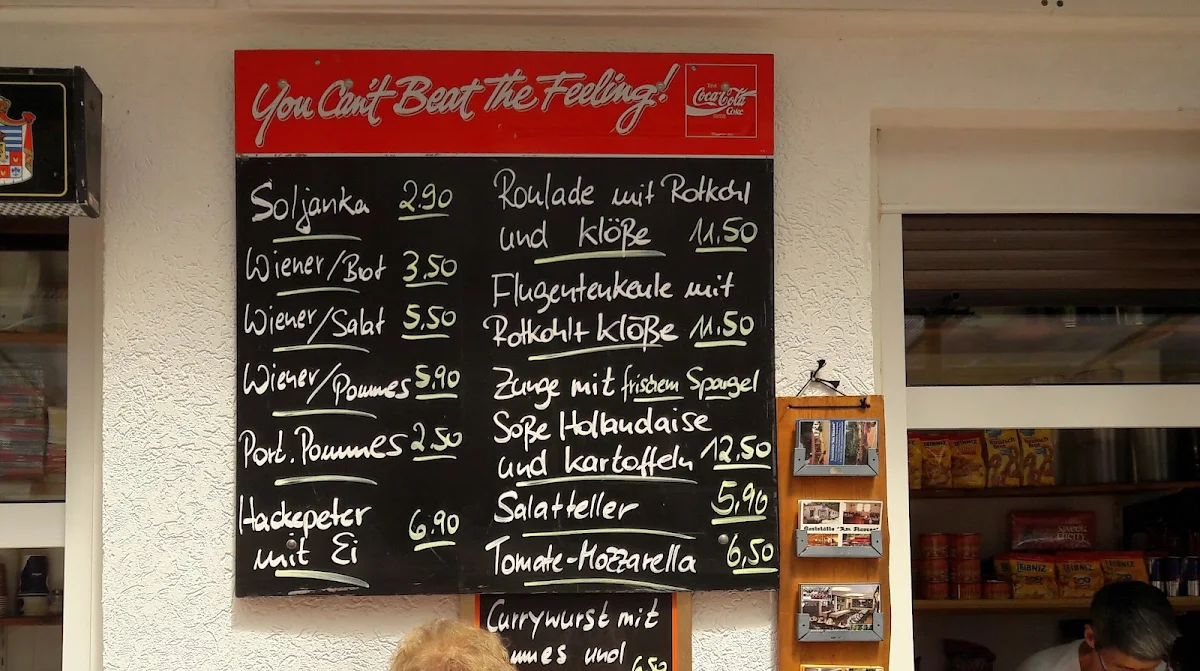 You Can't Beat The Feeling!
Coca-Cola
Coke
Soljanka 2.90
Wiener/Brot 3.50
Wiener/Salat 5.50
Wiener/Pommes 5.90
Port. Pommes 2.50
Hackepeter
mit Ei 6.90
Roulade mit Rotkohl
und Klöße 11.50
Flugentenkeule mit
Rotkohl+ Klöße 11.50
Zunge mit frischem Spargel
Soße Hollandaise
und Kartoffeln 12.50
Salatteller 5,90
Tomate-Mozzarella 6,50
Currywurst mit
und 6.50
LEIBNIZ
LEIBNIZ
LEIBNIZ
cherry